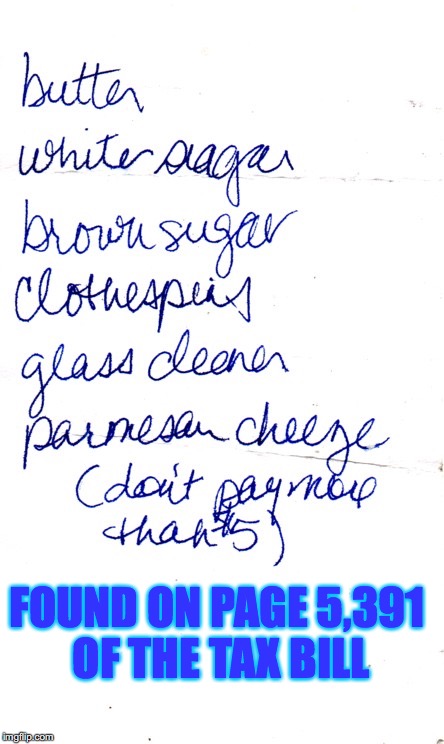 butter
white sugar
brown sugar
clothespins
glass cleener
parmesan cheeze
(don't pay more
than $5)
FOUND ON PAGE 5,391
OF THE TAX BILL
imgflip.com